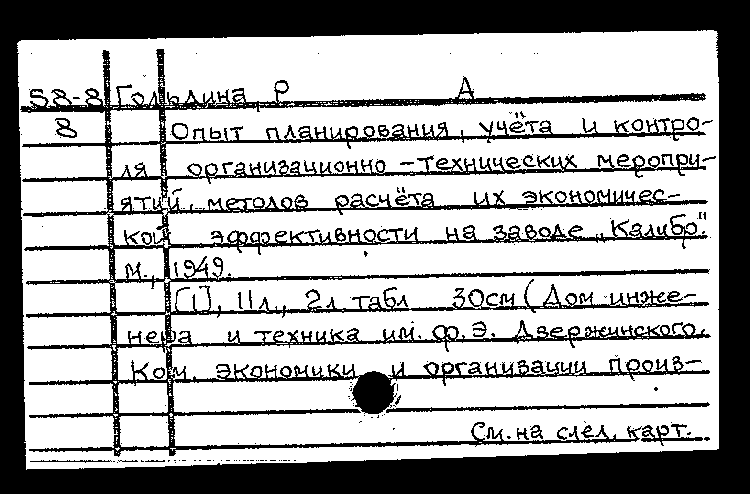 58-8 Гольдина, Р А
8 Опыт планирования, учёта и контро-
ля организационно-технических меропри-
ятий, методов расчёта их экономичес-
кой эффективности на заводе „Калибр".
М., 1949.
[1], 11л., 2л. табл 30см (Дом инже-
нера и техника им. Ф.Э. Дзержинского.
Ком. экономики и организации произ-
См. на след. карт.